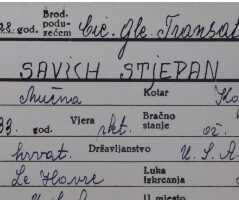 28. god. Brod. podu- zećem Cié. Gle. Transat
SAVICH STJEPAN
Mučna Kotar Ko
god. Vjera rkt. Bračno stanje ož.
hrvat. Državljanstvo U.S.A.
Le Havre Luka Izkrcanja
U mjesto